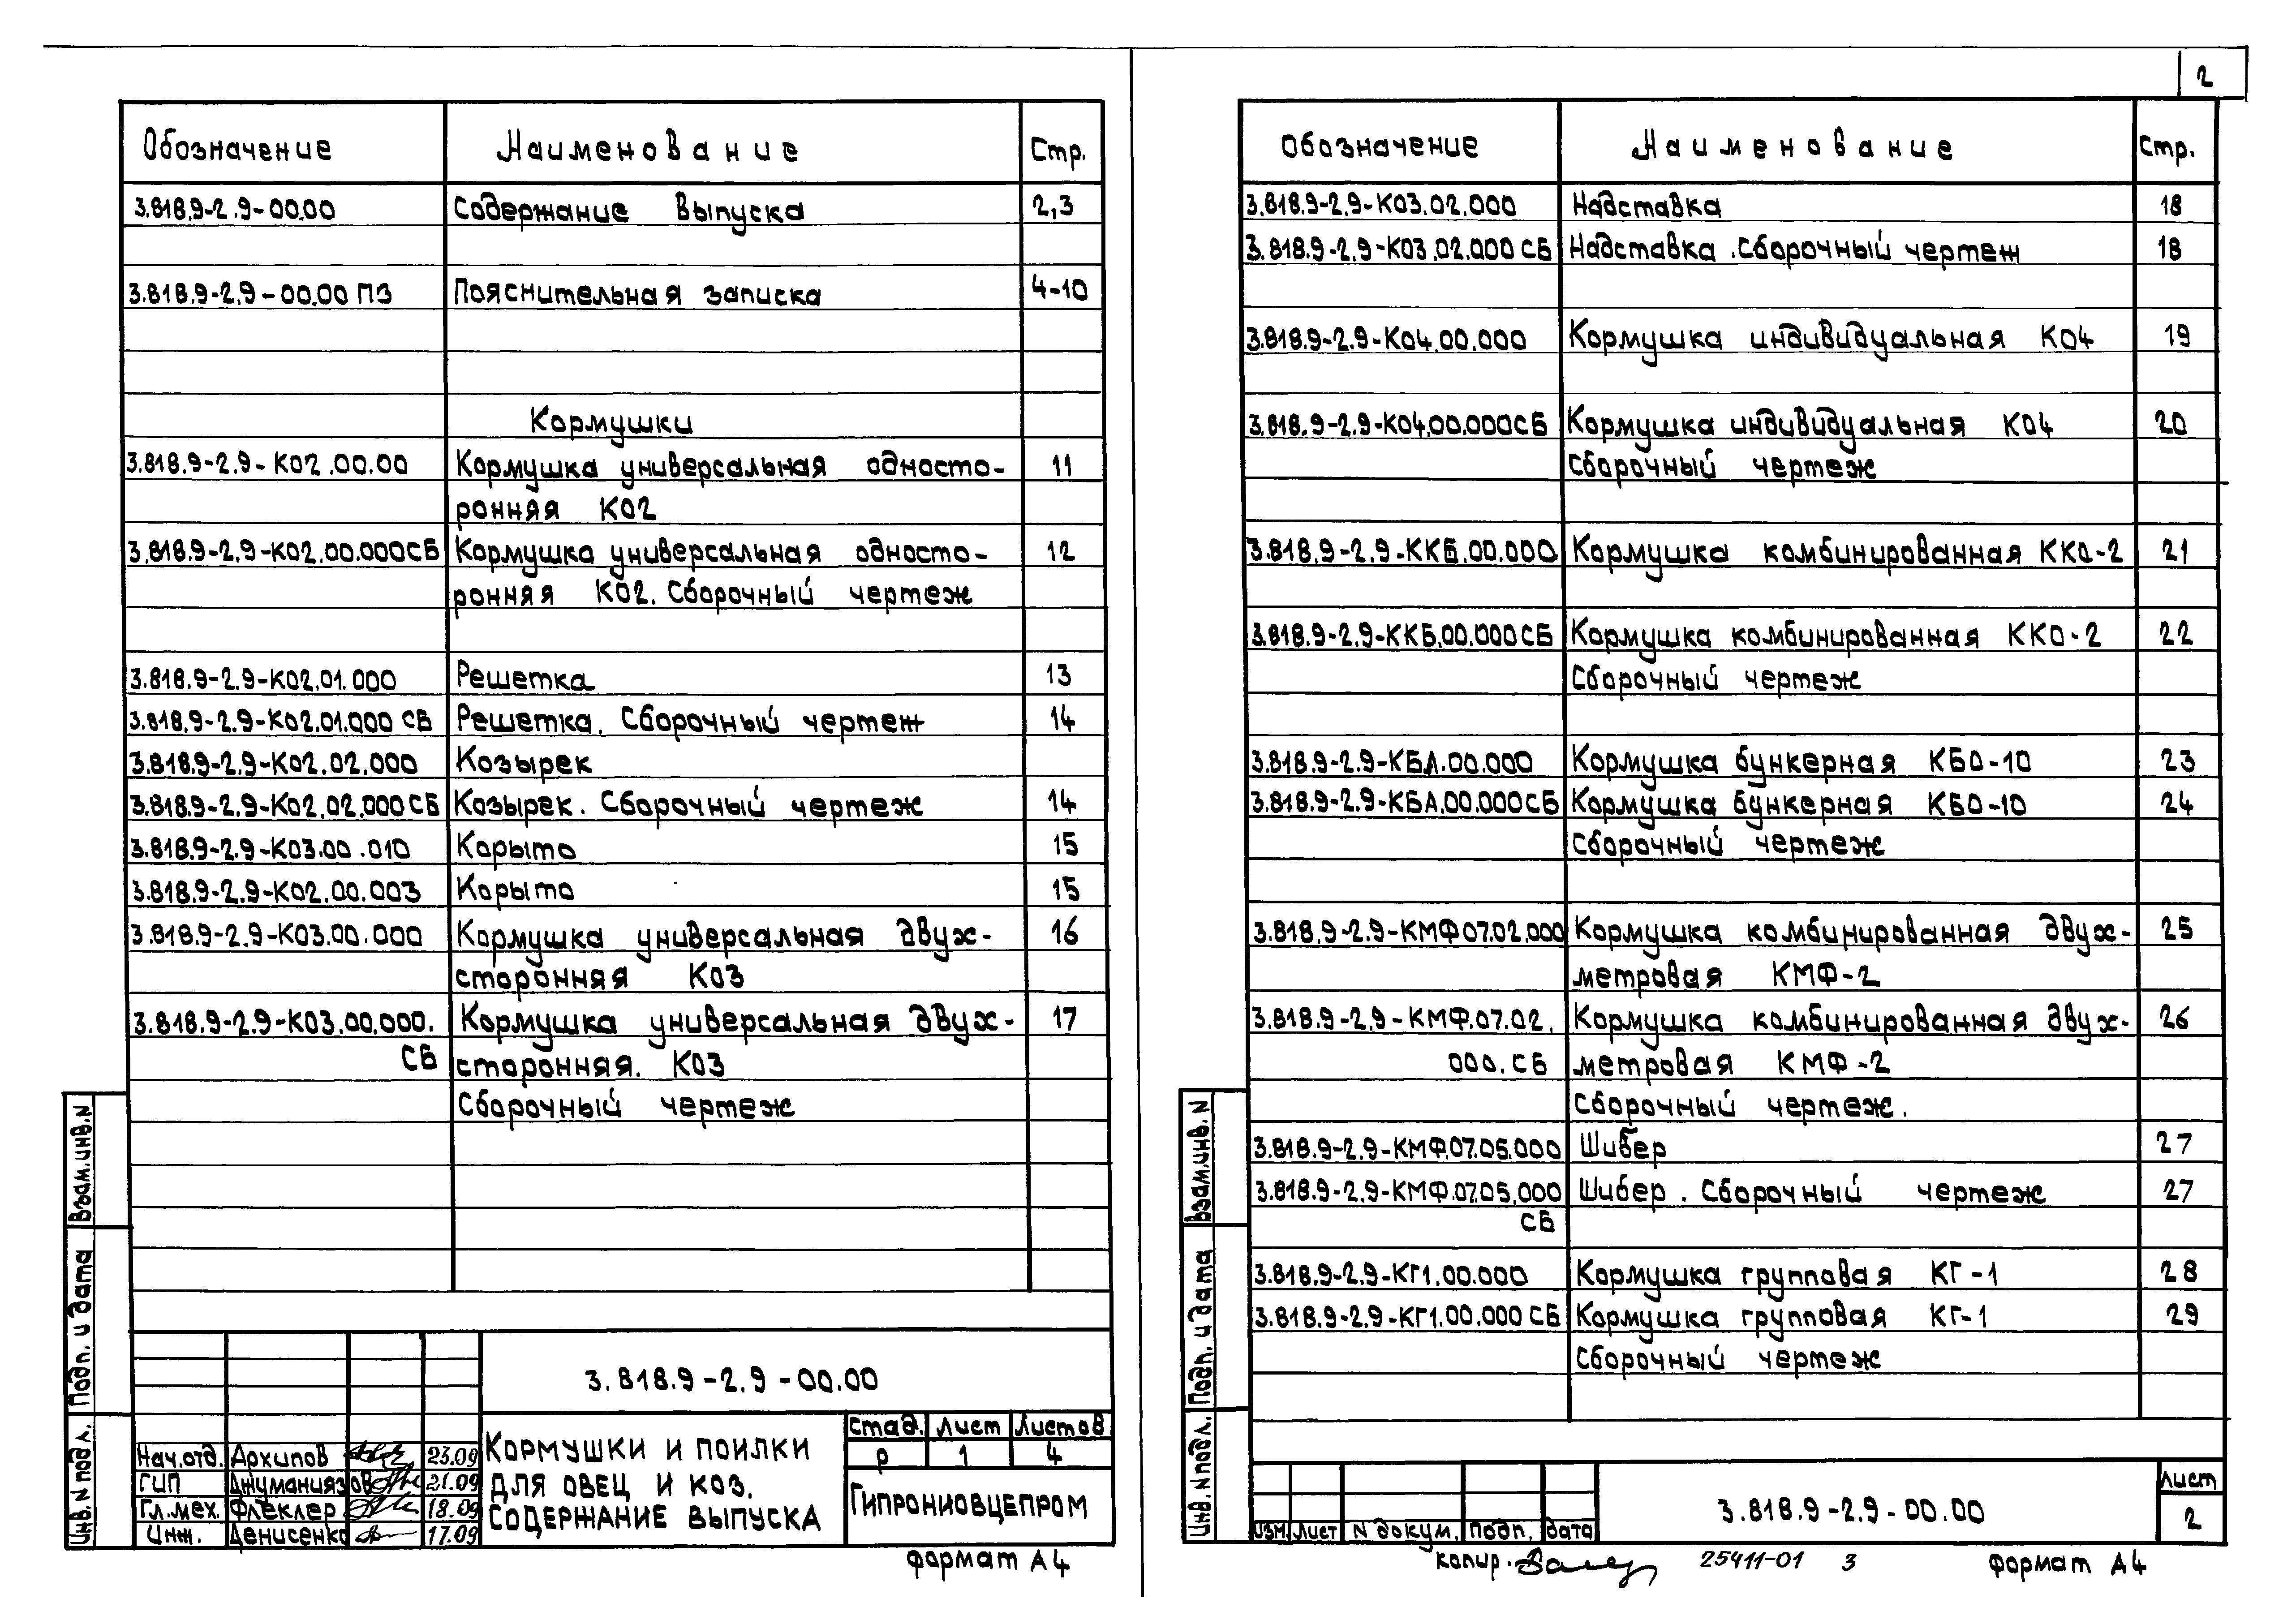 2
Обозначение Наименование Стр.
3.818.9-2.9-00.00 Содержание выпуска 2,3
3.818.9-2.9-00.00 ПЗ Пояснительная записка 4-10
Кормушки
3.818.9-2.9-К02.00.00 Кормушка универсальная односто- 11
ронняя К02
3.818.9-2.9-К02.00.000СБ Кормушка универсальная односто- 12
ронняя К02. Сборочный чертеж
3.818.9-2.9-К02.01.000 Решетка 13
3.818.9-2.9-К02.01.000 СБ Решетка. Сборочный чертеж 14
3.818.9-2.9-К02.02.000 Козырек
3.818.9-2.9-К02.02.000СБ Козырек. Сборочный чертеж 14
3.818.9-2.9-К03.00.010 Корыто 15
3.818.9-2.9-К02.00.003 Корыто 15
3.818.9-2.9-К03.00.000 Кормушка универсальная двух- 16
сторонняя К03
3.818.9-2.9-К03.00.000. Кормушка универсальная двух- 17
СБ сторонняя. К03
Сборочный чертеж
Взам.инв.N
Подп. и дата
Инв.N подл.
3.818.9-2.9-00.00
Нач.отд. Архипов 23.09
ГИП Джуманиязов 21.09
Гл.мех. Флеклер 18.09
Инж. Денисенко 17.09
Кормушки и поилки
для овец и коз.
Содержание выпуска
Стад. Лист Листов
Р 1 4
Гипрониовцепром
Формат А4
Обозначение Наименование Стр.
3.818.9-2.9-К03.02.000 Надставка 18
3.818.9-2.9-К03.02.000 СБ Надставка. Сборочный чертеж 18
3.818.9-2.9-К04.00.000 Кормушка индивидуальная К04 19
3.818.9-2.9-К04.00.000СБ Кормушка индивидуальная К04 20
Сборочный чертеж
3.818.9-2.9-ККБ.00.000 Кормушка комбинированная ККО-2 21
3.818.9-2.9-ККБ.00.000СБ Кормушка комбинированная ККО-2 22
Сборочный чертеж
3.818.9-2.9-КБА.00.000 Кормушка бункерная КБО-10 23
3.818.9-2.9-КБА.00.000СБ Кормушка бункерная КБО-10 24
Сборочный чертеж
3.818.9-2.9-КМФ07.02.000 Кормушка комбинированная двух- 25
метровая КМФ-2
3.818.9-2.9-КМФ.07.02. Кормушка комбинированная двух- 26
000.СБ метровая КМФ-2
Сборочный чертеж.
3.818.9-2.9-КМФ.07.05.000 Шибер 27
3.818.9-2.9-КМФ.07.05.000 Шибер. Сборочный чертеж 27
СБ
3.818.9-2.9-КГ1.00.000 Кормушка групповая КГ-1 28
3.818.9-2.9-КГ1.00.000 СБ Кормушка групповая КГ-1 29
Сборочный чертеж
Взам.инв.N
Подп. и дата
Инв.N подл.
Изм Лист N докум. Подп. Дата
3.818.9-2.9-00.00
Лист
2
копир.
25411-01 3
Формат А4